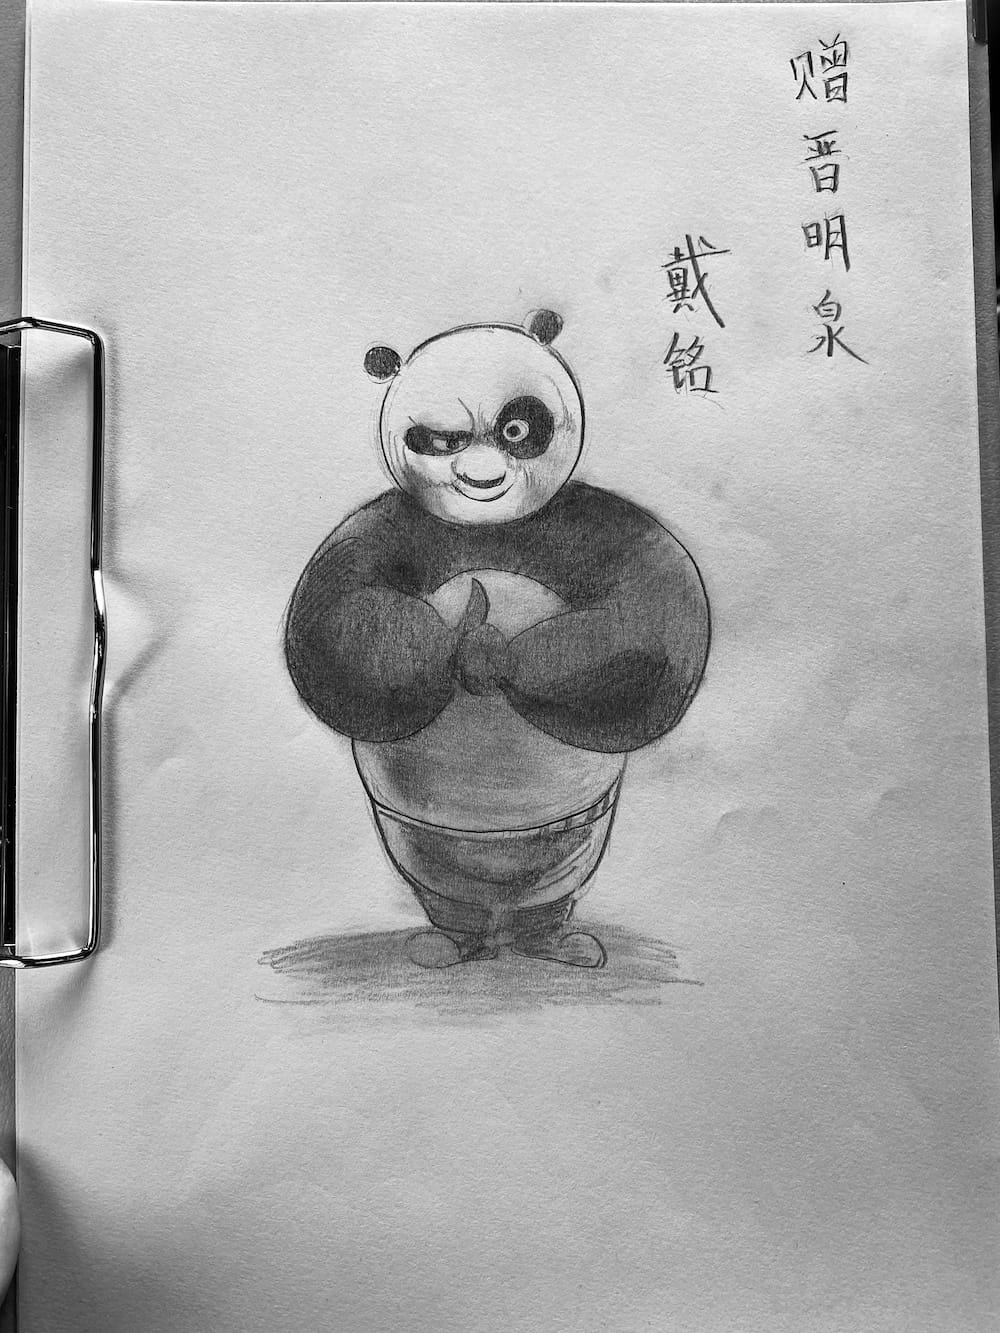 赠晋明泉
戴铭